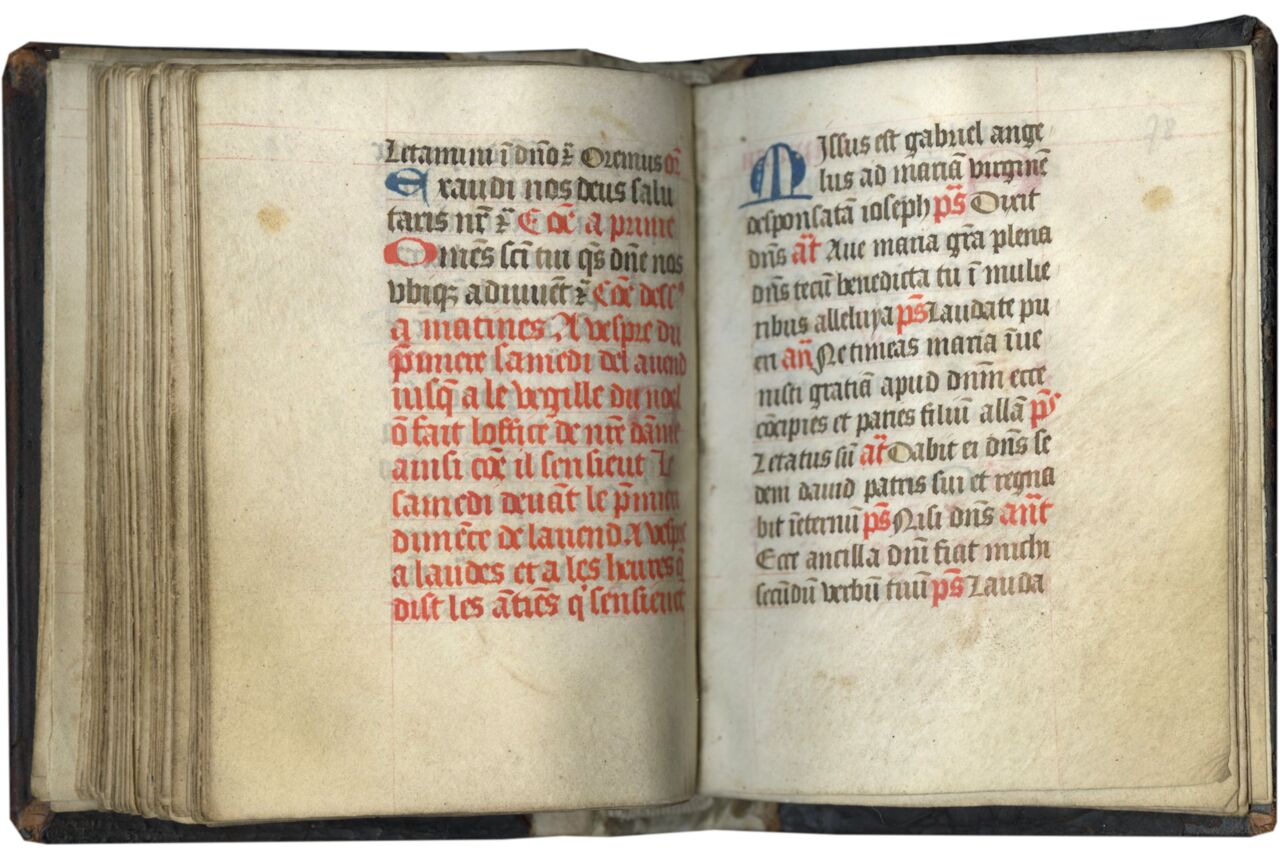 Letamini ī dn̄o ⁊̄ Oremus or̄
Exaudi nos deus salu
taris nr̄ ⁊̄ E cōe a prime
Omēs sc̄i tui qs̄ dn̄e nos
vbiqꝫ adiuuēt ⁊̄ Cōe dess9
a matines. A vespre du
p̄miere samedi del auend
iusq̄ a le vegille du noel
ō fait loffice de nr̄e dame
ainsi cōe il sensieut Le
samedi deuāt le p̄mier
dimēce de lauend A vespre
a laudes et a les heures q̄
dist les ātiēs q' sensieuēt
Missus est gabriel ange
lus ad mariā virginē
desponsatā ioseph ps̄ Dixit
dn̄s āt Aue maria gr̄a plena
dn̄s tecū benedicta tu ī mulie
ribus alleluya ps̄ Laudate pu
eri an̄ Ne timeas maria īue
nisti gratiā apud dn̄m ecce
cōcipies et paries filiū allā ps̄
Letatus sū āt Dabit ei dn̄s se
dem dauid patris sui et regna
bit īeternū ps̄ Nisi dn̄s an̄t
Ecce ancilla dn̄i fiat michi
secūdū verbū tuū ps̄ Lauda
78